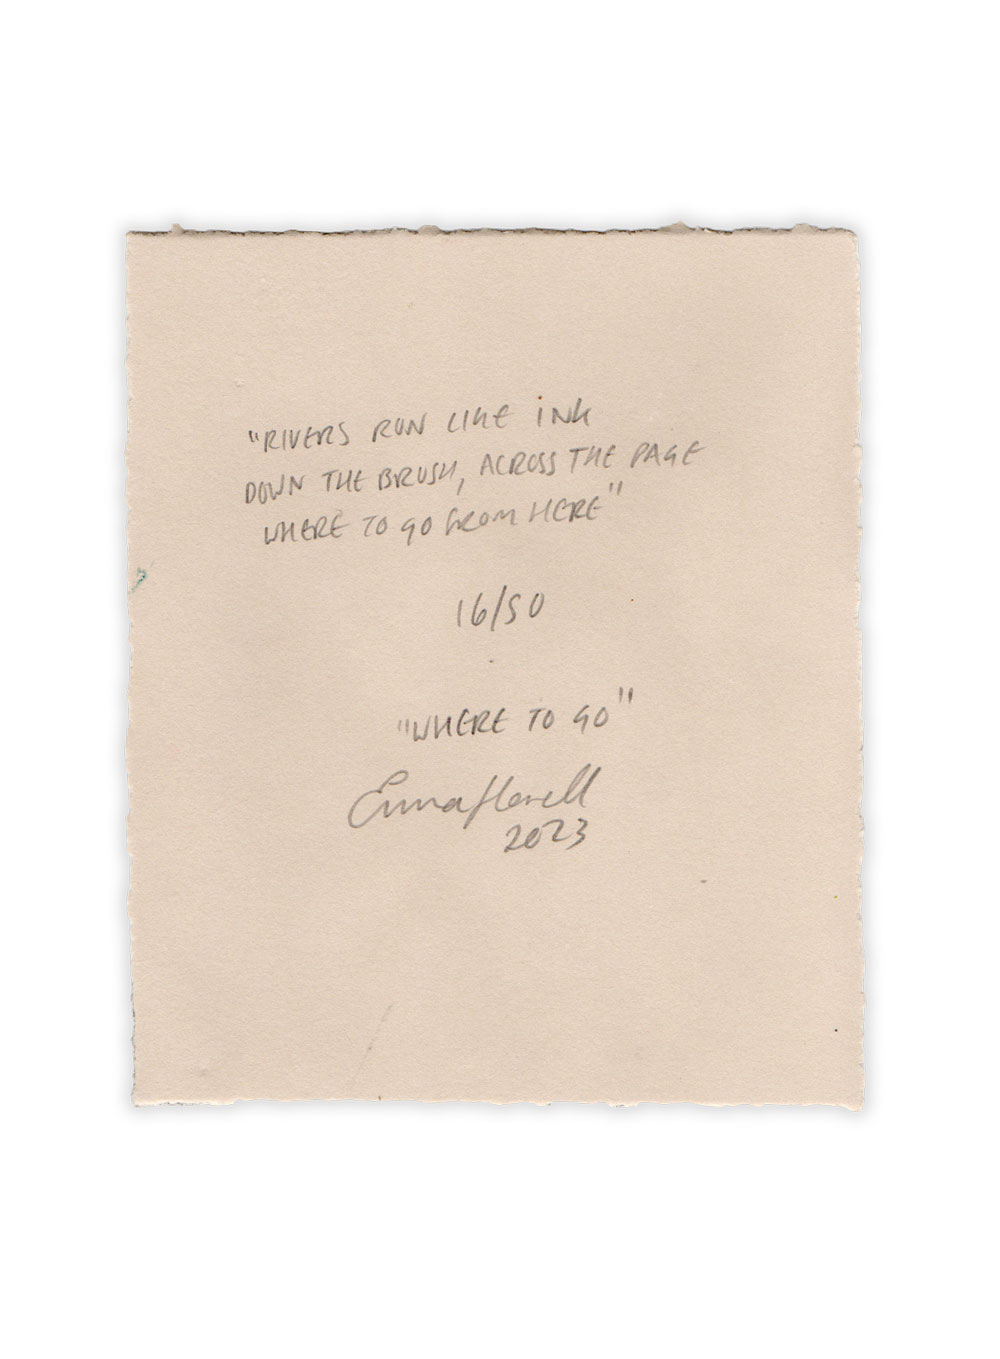 "RIVERS RUN LIKE INK
DOWN THE BRUSH, ACROSS THE PAGE
WHERE TO GO FROM HERE"
16/50
"WHERE TO GO"
Emma Howell
2023